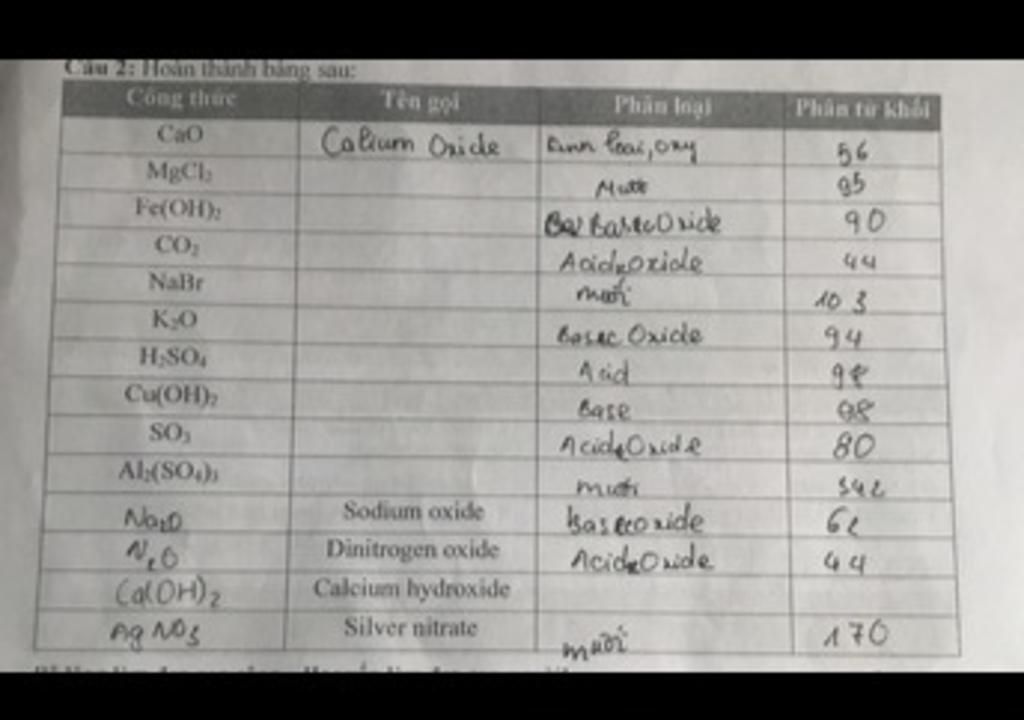 Câu 2: Hoàn thành bảng sau:
Công thức Tên gọi Phân loại Phân tử khối
CaO Calium Oxide kim loai, oxy 56
MgCl₂ Muối 95
Fe(OH)₂ Basec Oxide 90
CO₂ Acid Oxide 44
NaBr muối 103
K₂O Basec Oxide 94
H₂SO₄ Acid 98
Cu(OH)₂ Base 98
SO₃ Acid Oxide 80
Al₂(SO₄)₃ muối 342
Na₂O Sodium oxide basecoxide 62
N₂O Dinitrogen oxide Acid Oxide 44
Ca(OH)₂ Calcium hydroxide
AgNO₃ Silver nitrate muối 170